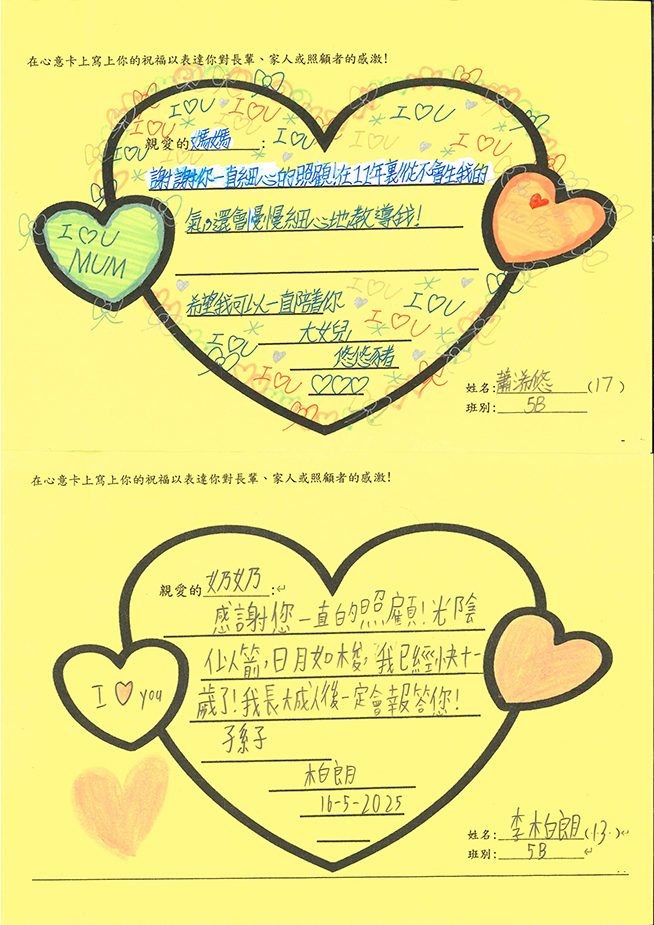 在心意卡上寫上你的祝福以表達你對長輩、家人或照顧者的感激!
I ♡ U
I ♡ U
I ♡ U
I ♡ U
I ♡ U
I ♡ U
親愛的媽媽:
I ♡ U
I ♡ U
謝謝你一直細心的照顧!在11年裏從不會生我的
氣,還會慢慢細心地教導我!
I ♡ U
MUM
希望我可以一直陪着你
I ♡ U
I ♡ U
I ♡ U
大女兒,
I ♡ U
悠悠豬
I ♡ U
I ♡ U
♡♡♡
姓名:蕭浠悠(17)
班別:5B
在心意卡上寫上你的祝福以表達你對長輩、家人或照顧者的感激!
親愛的奶奶:
感謝您一直的照顧!光陰
似箭,日月如梭,我已經快十一
歲了!我長大成人後一定會報答您!
I ♡ you
孫子
柏朗
16-5-2025
姓名:李柏朗(13)
班別:5B